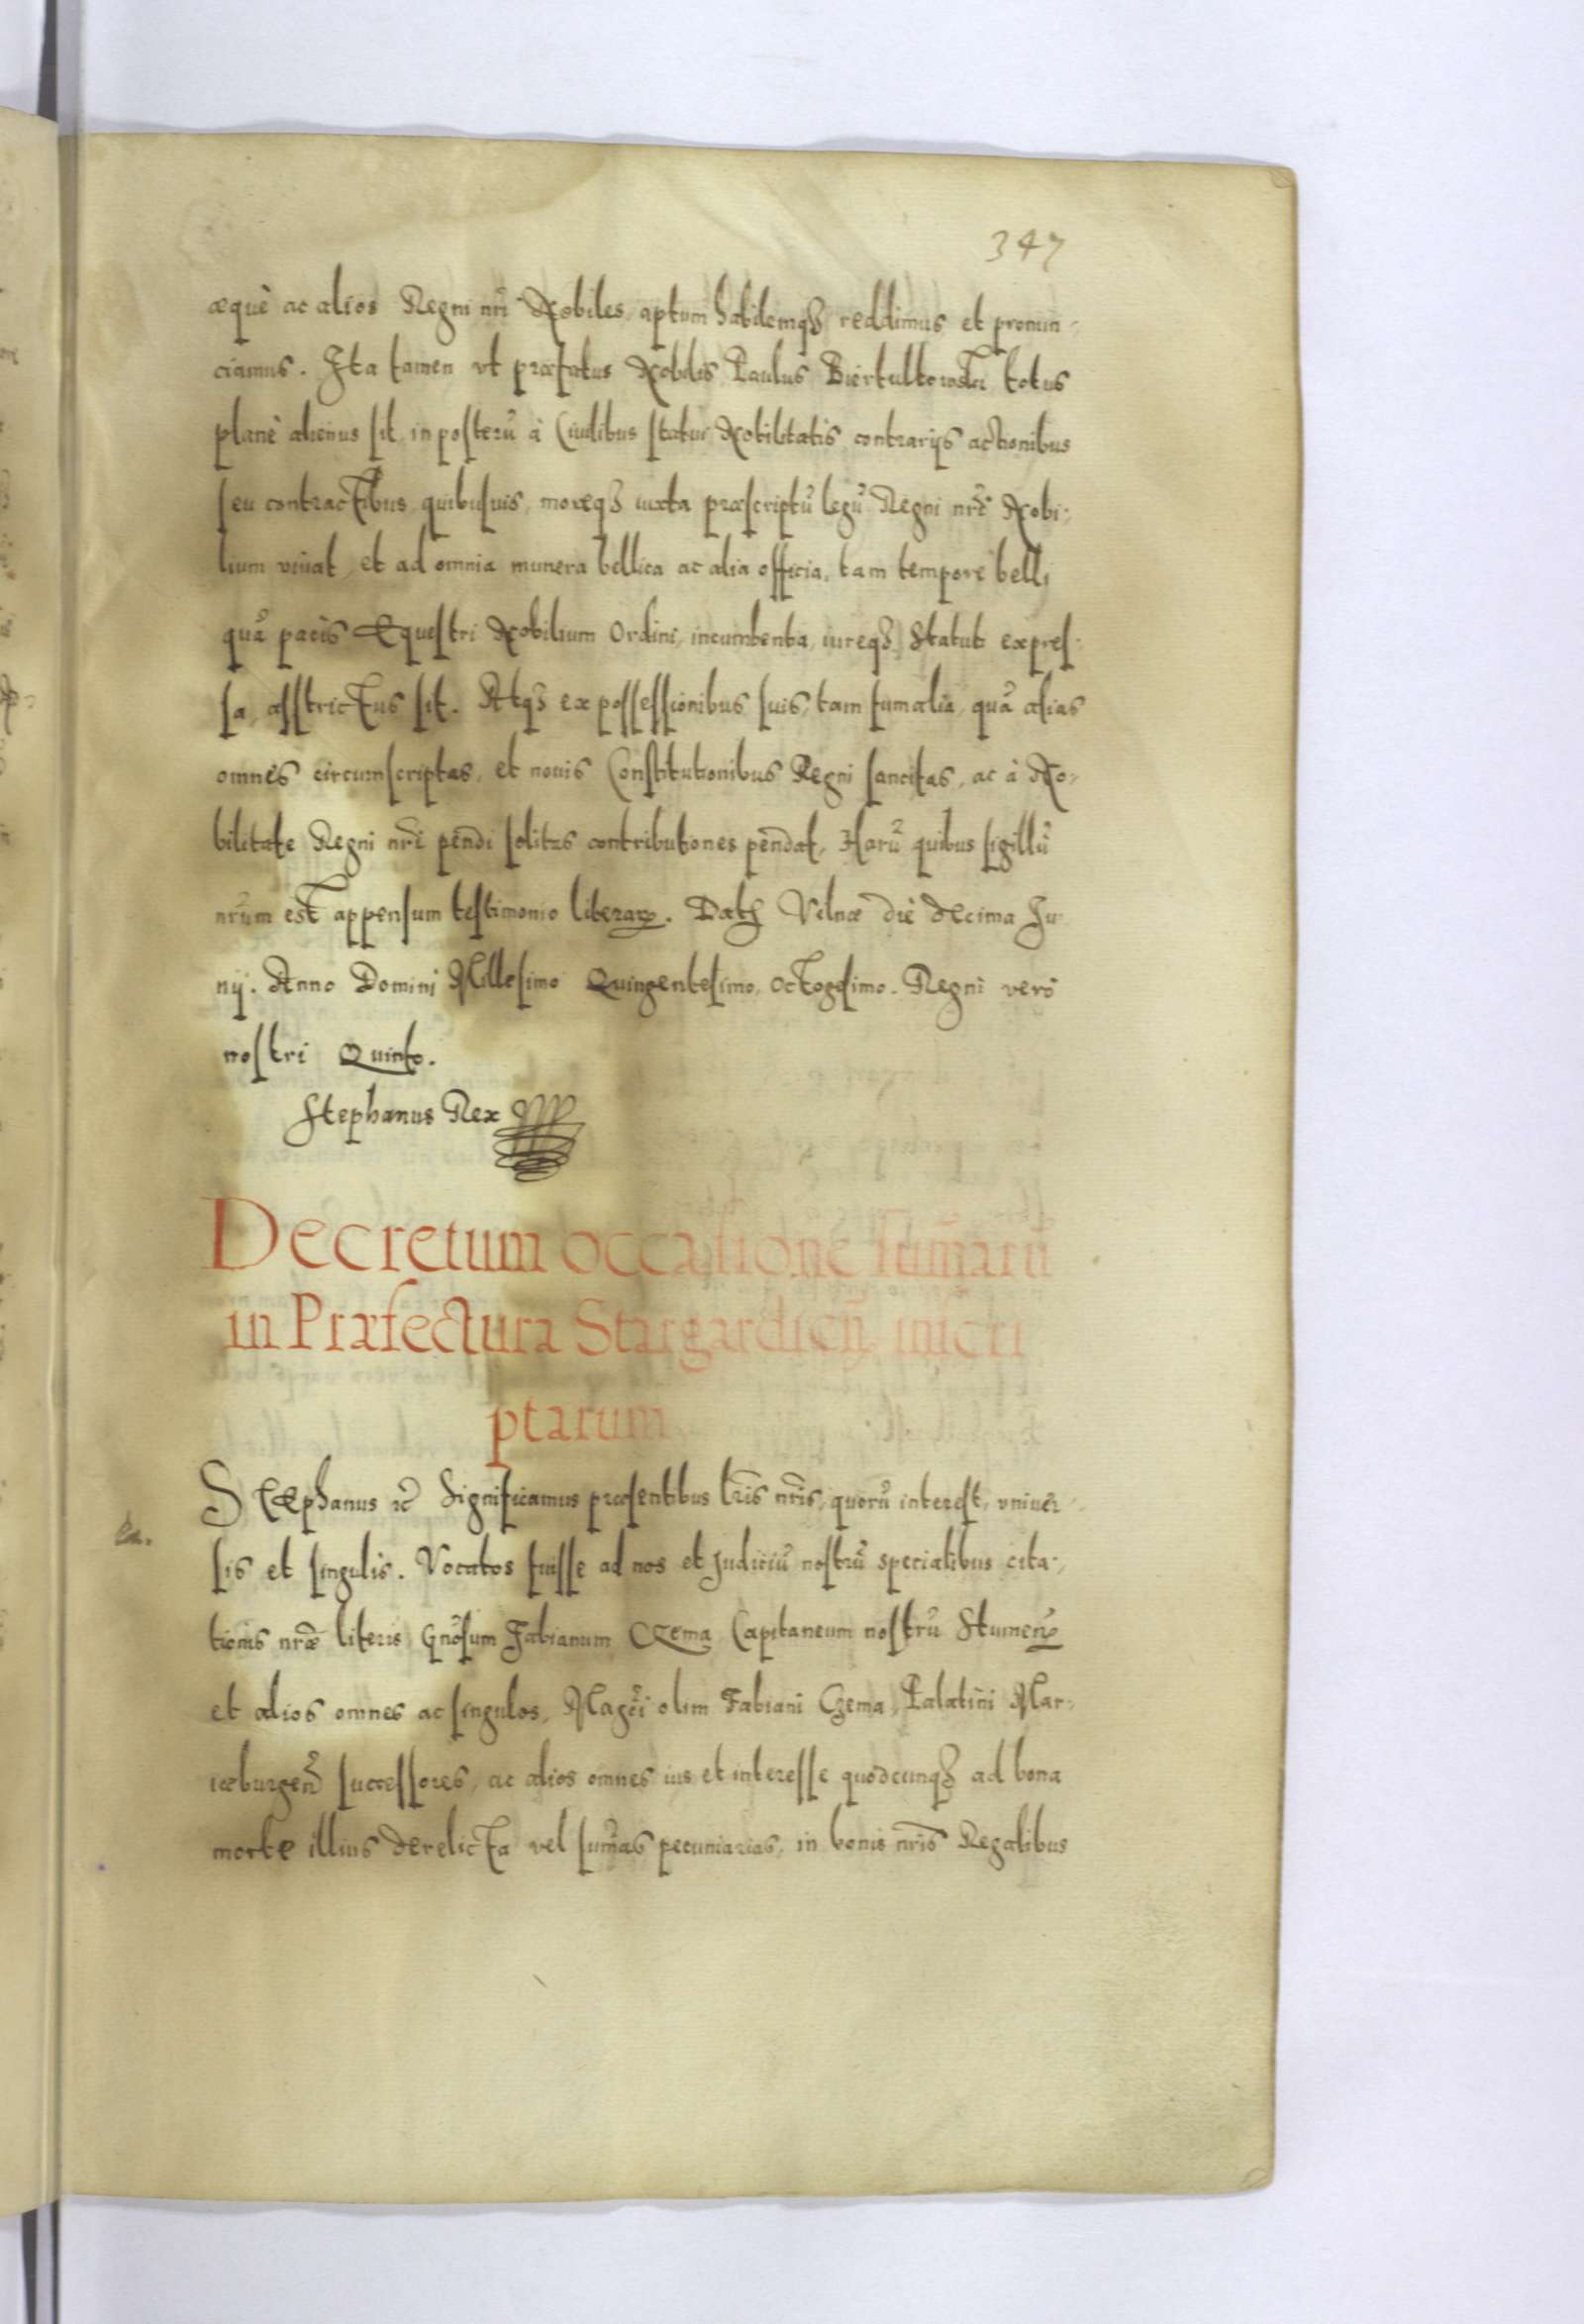 347
æquè ac alios Regni nrĩ Nobiles, aptum habilemqꝫ reddimus et pronun-
ciamus. Ita tamen vt præfatus Nobilis Paulus Biertultowski totus
planè alienus sit, in posterũ à Ciuilibus statui Nobilitatis contrarijs actionibus
seu contractibus quibusuis, moreqꝫ iuxta præscriptũ legũ Regni nrĩ Nobi-
lium viuat, et ad omnia munera bellica ac alia officia, tam tempore belli
quã pacis Equestri Nobilium Ordini, incumbentia, iureqꝫ Statuti expres-
sa, asstrictus sit. Atqꝫ ex possessionibus suis, tam fumalia, quã alias
omnes circumscriptas, et nouis Constitutionibus Regni sancitas, ac à No-
bilitate Regni nrĩ pendi solitas contributiones pendat. Harũ quibus sigillũ
nrũm est appensum testimonio literarꝝ. Datꝫ Vilnæ die decima Ju-
nij. Anno Domini Millesimo Quingentesimo, Octogesimo. Regni vero
nostri Quinto.
Stephanus Rex
Decretum occassione sum̃arũ
in Præfectura Stargardieñ inscri
ptarum
Stephanus ꝛc̃ Significamus præsentibus lrĩs nrĩs, quorũ interest, vniuer-
sis et singulis. Vocatos fuisse ad nos et Judiciũ nostrũ specialibus cita-
tionis nræ̃ literis, Gnõsum Fabianum Czema Capitaneum nostrũ Stumeñ
et alios omnes ac singulos, Magcĩ olim Fabiani Czema, Palatini Mar-
iæburgeñ successores, ac alios omnes ius et interesse quodcunqꝫ ad bona
morte illius derelicta vel sum̃as pecuniarias, in bonis nrĩs Regalibus